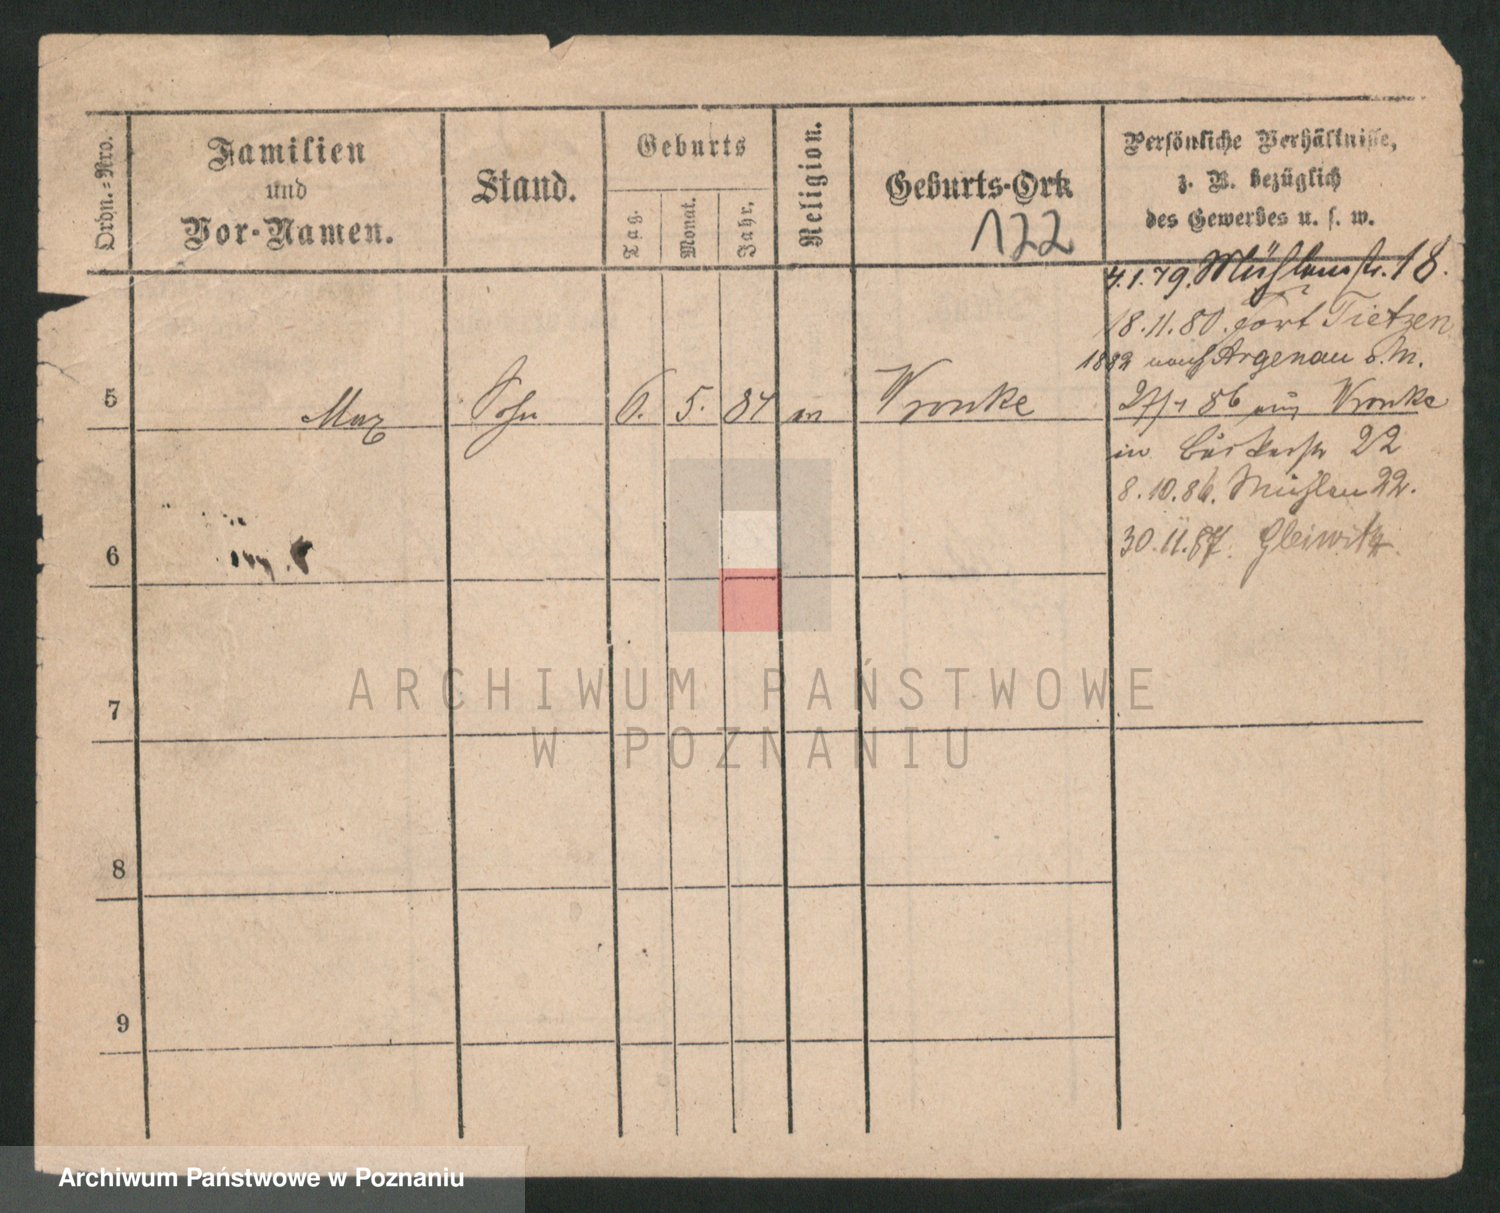 Ordn.-Nro.
Familien
und
Vor-Namen.
Stand.
Geburts
Tag.
Monat.
Jahr.
Religion.
Geburts-Ort
122
Persönliche Verhältnisse,
z. B. bezüglich
des Gewerbes u. s. w.
4.1.79. Mühlenstr. 18.
18.11.80. Fort Tietzen
1882 nach Argenau
5 Max Sohn 6. 5. 84 Wronke
86 aus Wronke
in Bäckerstr 22
8.10.86. Mühlen 22.
30.11.87. Gleiwitz
6
7
8
9
ARCHIWUM PAŃSTWOWE
W POZNANIU
Archiwum Państwowe w Poznaniu